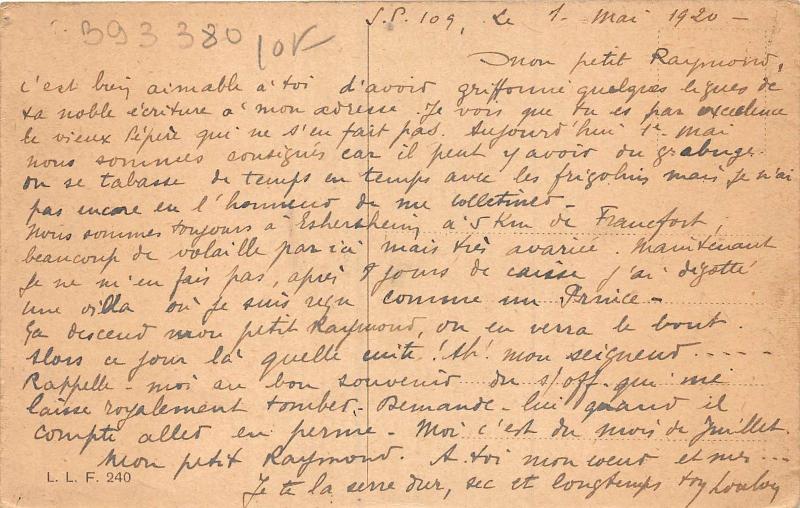 393 380 10F
S.P. 109, Le 1 Mai 1920 -
Mon petit Raymond,
C'est bien aimable à toi d'avoir griffonné quelques lignes de
ta noble écriture à mon adresse. Je vois que tu es par excellence
le vieux Pépère qui ne s'en fait pas. Aujourd'hui 1er Mai
nous sommes consignés car il peut y avoir du grabuge.
on se tabasse de temps en temps avec les frigolins mais je n'ai
pas encore eu l'honneur de me colletiner -
Nous sommes toujours à Eshersheim à 5 Km de Francfort,
beaucoup de volaille par ici mais très avariée. Maintenant
Je ne m'en fais pas, après 8 jours de caisse j'ai dégotté
une villa où je suis reçu comme un Prince -
Ça descend mon petit Raymond, on en verra le bout
alors ce jour là quelle cuite ! Ah ! mon seigneur - - - -
Rappelle - moi au bon souvenir du s/off. qui me
laisse royalement tomber. Demande - lui quand il
compte aller en perme - Moi c'est du mois de Juillet.
Mon petit Raymond. A toi mon coeur et mes ---
Je te la serre dur, sec et longtemps ton
L. L. F. 240